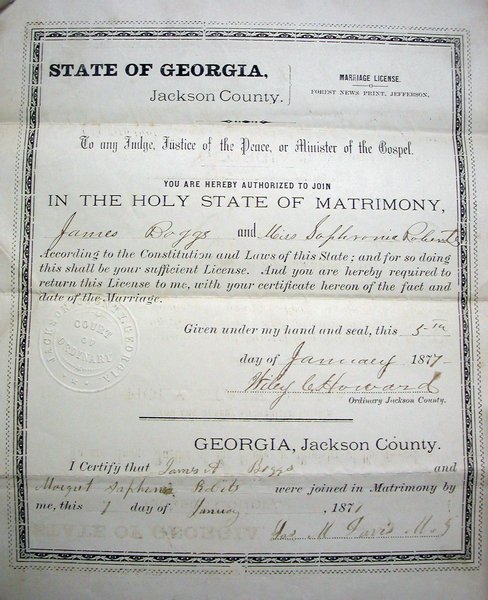 STATE OF GEORGIA,
Jackson County.
MARRIAGE LICENSE.
FOREST NEWS PRINT, JEFFERSON,
To any Judge, Justice of the Peace, or Minister of the Gospel.
YOU ARE HEREBY AUTHORIZED TO JOIN
IN THE HOLY STATE OF MATRIMONY,
James Boggs and Miss Sophronia Roberts
According to the Constitution and Laws of this State; and for so doing
this shall be your sufficient License. And you are hereby required to
return this License to me, with your certificate hereon of the fact and
date of the Marriage.
JACKSON GEORGIA
COURT OF ORDINARY
Given under my hand and seal, this 5th
day of January 1877
Wiley C Howard
Ordinary Jackson County.
GEORGIA, Jackson County.
I Certify that James A Boggs and
Margret were joined in Matrimony by
me, this 7 day of January , 187
Jas M Davis M G